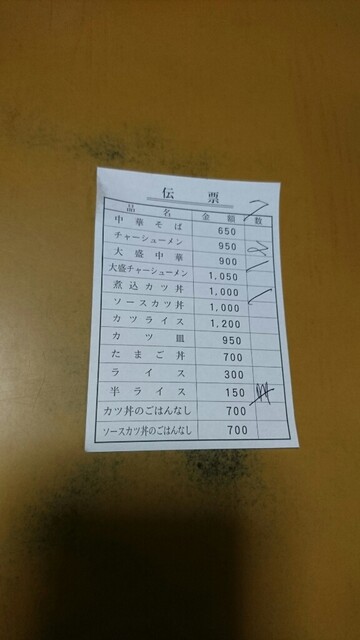 伝票
品名 金額 数
中華そば 650
チャーシューメン 950
大盛中華 900
大盛チャーシューメン 1,050
煮込カツ丼 1,000
ソースカツ丼 1,000
カツライス 1,200
カツ皿 950
たまご丼 700
ライス 300
半ライス 150
カツ丼のごはんなし 700
ソースカツ丼のごはんなし 700